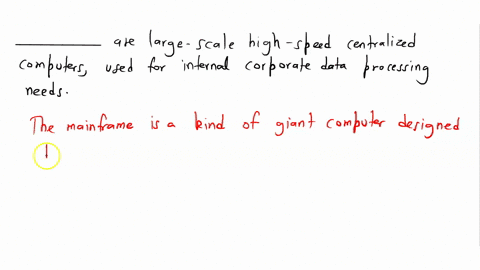 __________ are large-scale high-speed centralized
computers, used for internal corporate data processing
needs.
The mainframe is a kind of giant computer designed